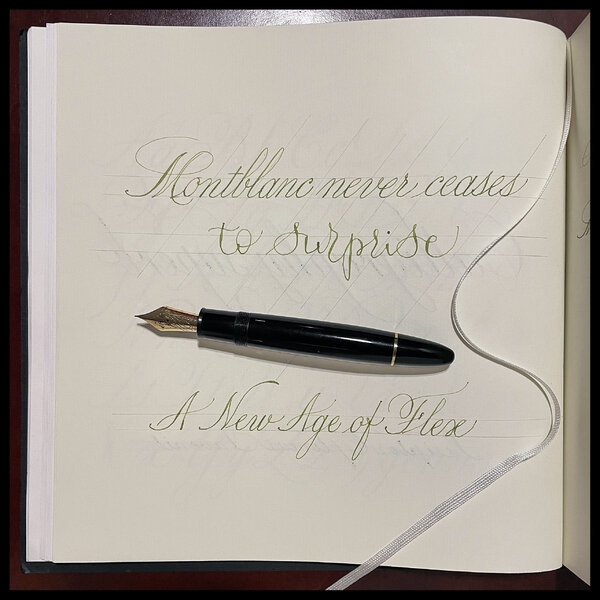 Montblanc never ceases
to surprise
A New Age of Flex